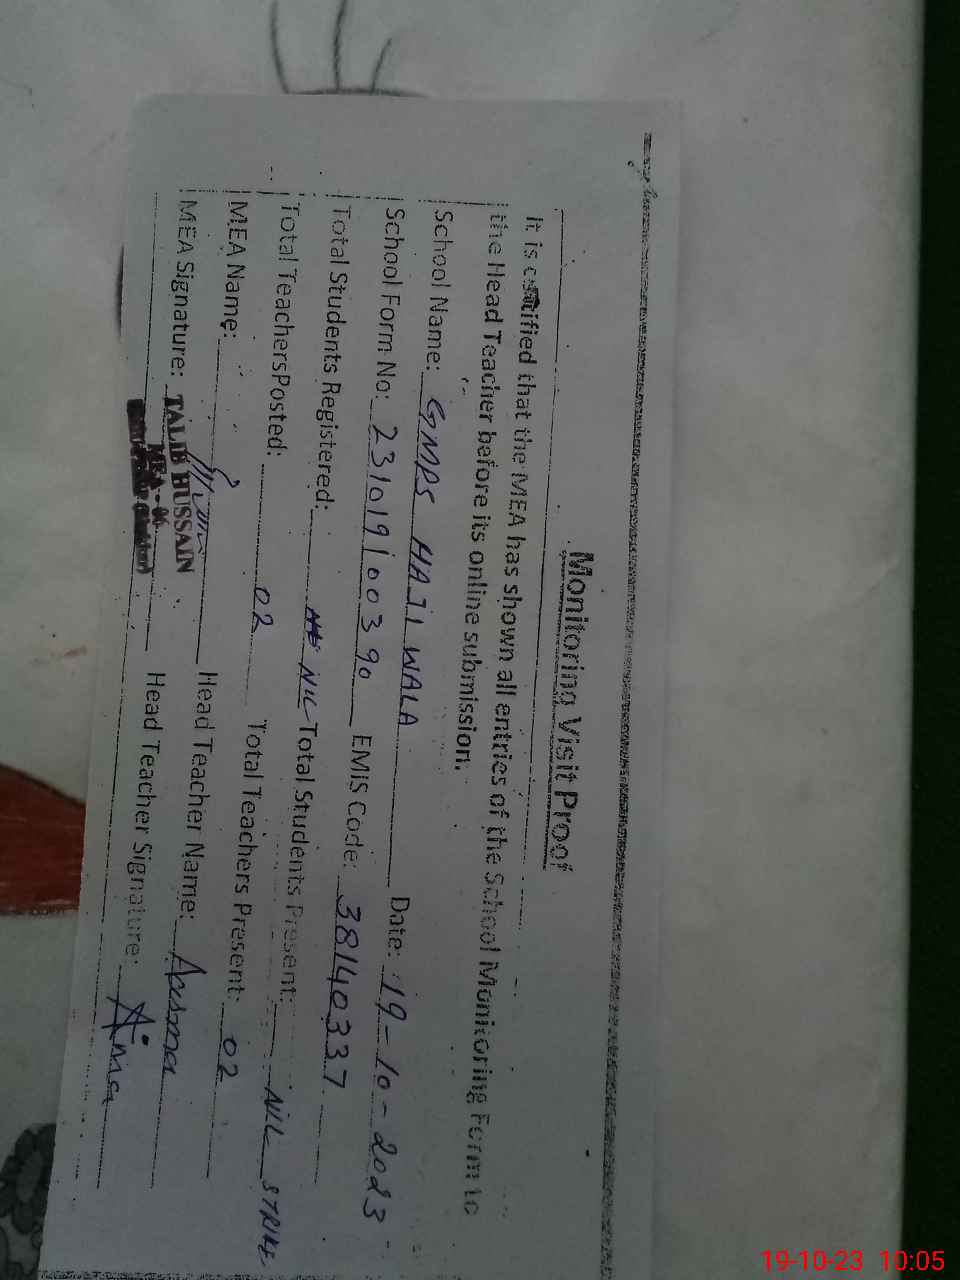 Monitoring Visit Proof
It is certified that the MEA has shown all entries of the School Monitoring Form to
the Head Teacher before its online submission.
School Name: GMPS HAJI WALA Date: 19-10-2023
School Form No: 231019100390 EMIS Code: 38140337
Total Students Registered: NIL Total Students Present: NIL STRIKE
Total Teachers Posted: 02 Total Teachers Present: 02
MEA Name: Head Teacher Name: Aasma
MEA Signature: TALIB HUSSAIN Head Teacher Signature:
MEA - 06
19-10-23 10:05